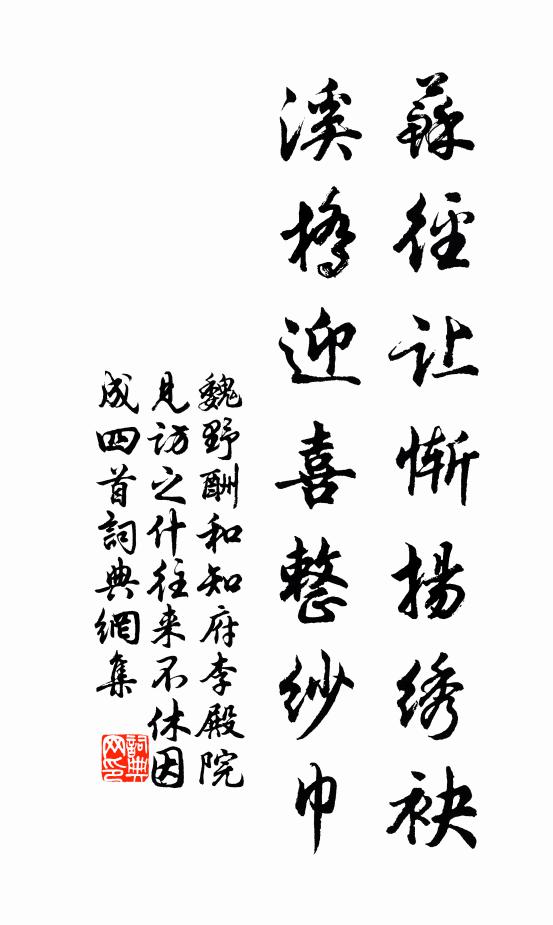 蘇徑让惭揚绣袂
溪橋迎喜整纱巾
魏野酬和知府李殿院
见訪之什往来不休因
成四首詞典網集
詞典
网印